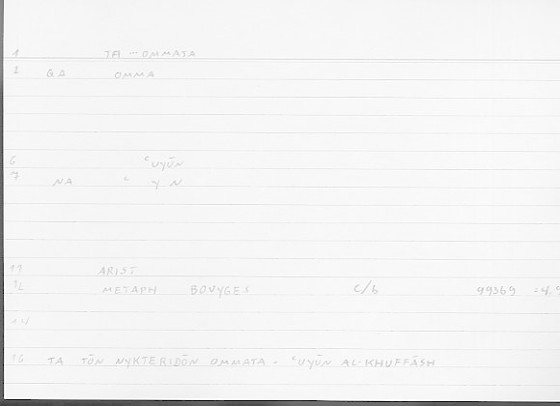 1 TA - OMMATA
2 QA OMMA
6 ʿUYŪN
7 NA ʿ Y N
11 ARIST
12 METAPH BOUYGES c/b 99369
16 TA TŌN NYKTERIDŌN OMMATA - ʿUYŪN AL-KHUFFĀSH